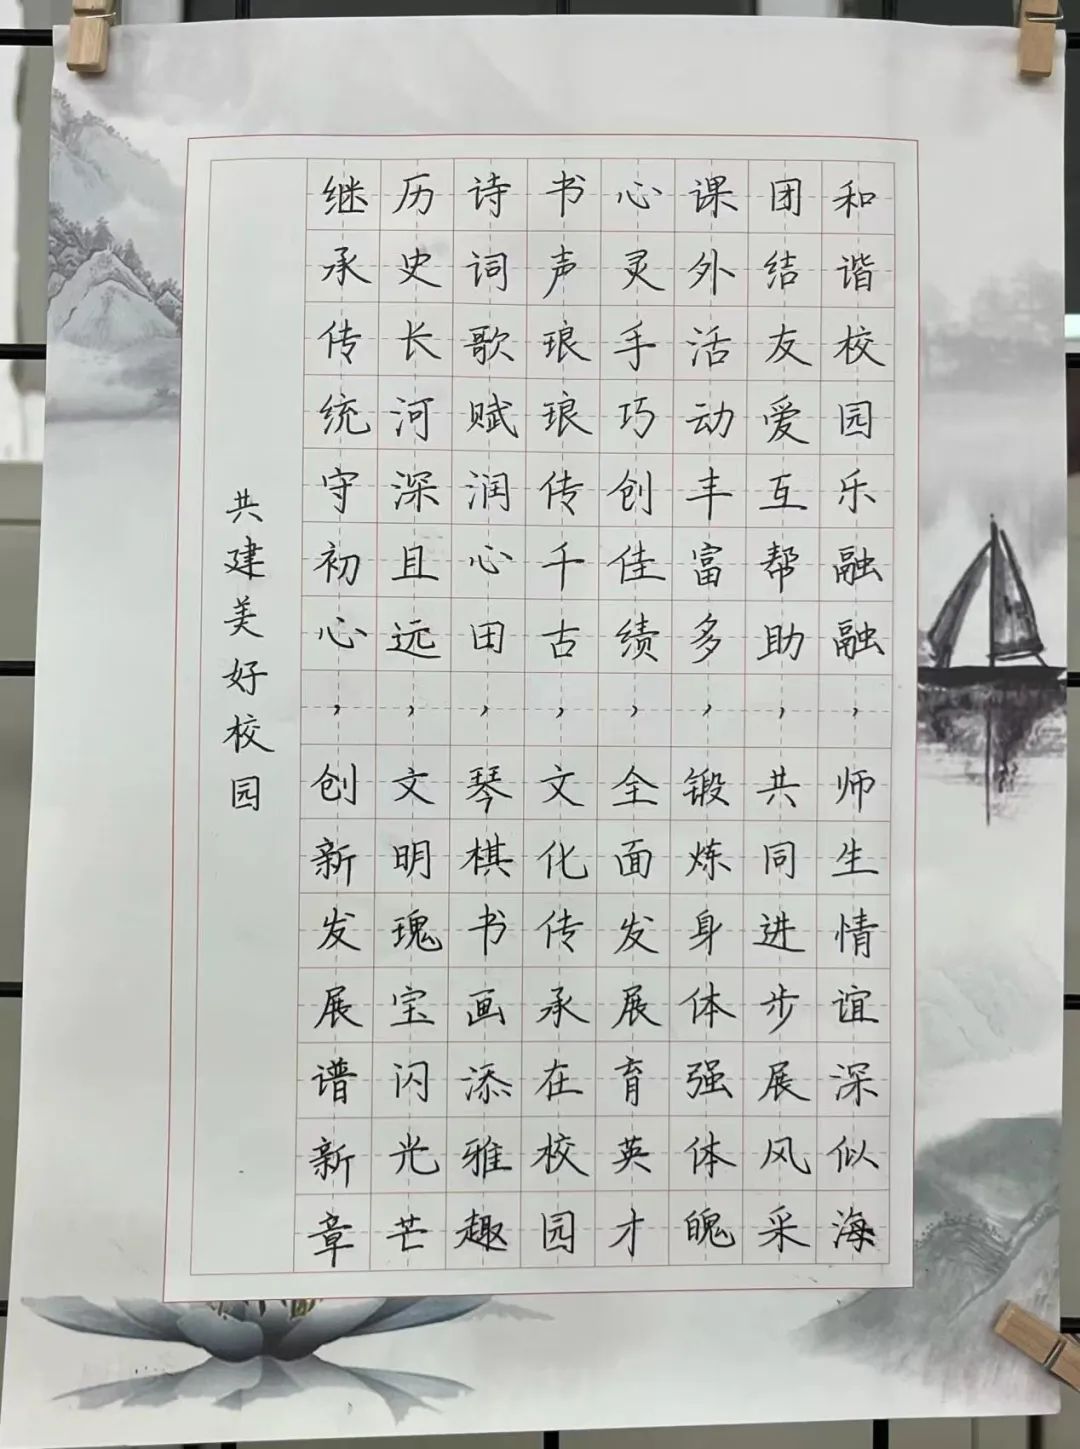 和谐校园乐融融，师生情谊深似海
团结友爱互帮助，共同进步展风采
课外活动丰富多，锻炼身体强体魄
心灵手巧创佳绩，全面发展育英才
书声琅琅传千古，文化传承在校园
诗词歌赋润心田，琴棋书画添雅趣
历史长河深且远，文明瑰宝闪光芒
继承传统守初心，创新发展谱新章
共建美好校园